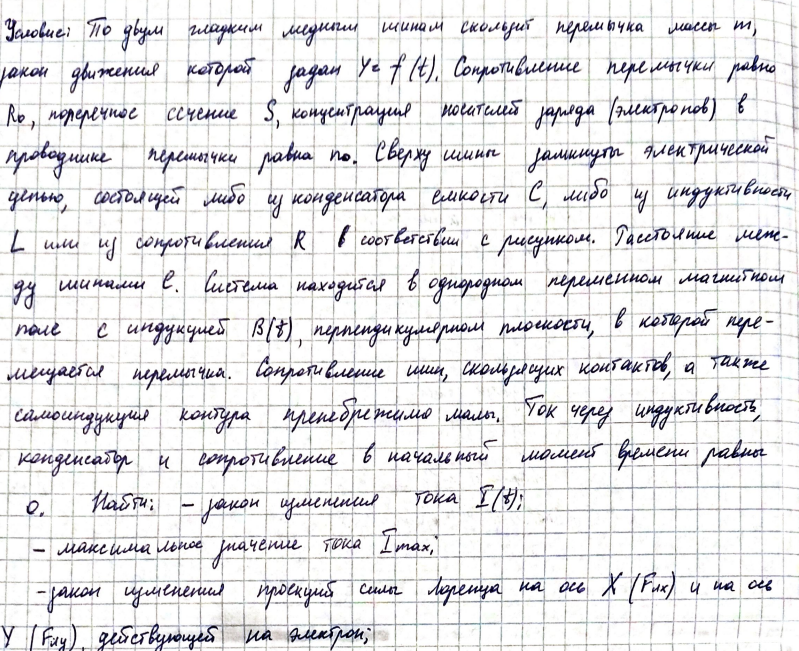 Условие: По двум гладким медным шинам скользит перемычка массы m,
закон движения которой задан Y= f(t). Сопротивление перемычки равно
R₀, поперечное сечение S, концентрация носителей заряда (электронов) в
проводнике перемычки равна n₀. Сверху шины замкнуты электрической
цепью, состоящей либо из конденсатора емкости C, либо из индуктивности
L или из сопротивления R в соответствии с рисунком. Расстояние меж-
ду шинами l. Система находится в однородном переменном магнитном
поле с индукцией B(t), перпендикулярном плоскости, в которой пере-
мещается перемычка. Сопротивление шин, скользящих контактов, а также
самоиндукция контура пренебрежимо малы. Ток через индуктивность,
конденсатор и сопротивление в начальный момент времени равны
0. Найти: - закон изменения тока I(t);
- максимальное значение тока Imax;
- закон изменения проекций силы Лоренца на ось X (Fлx) и на ось
Y (Fлy), действующей на электрон;